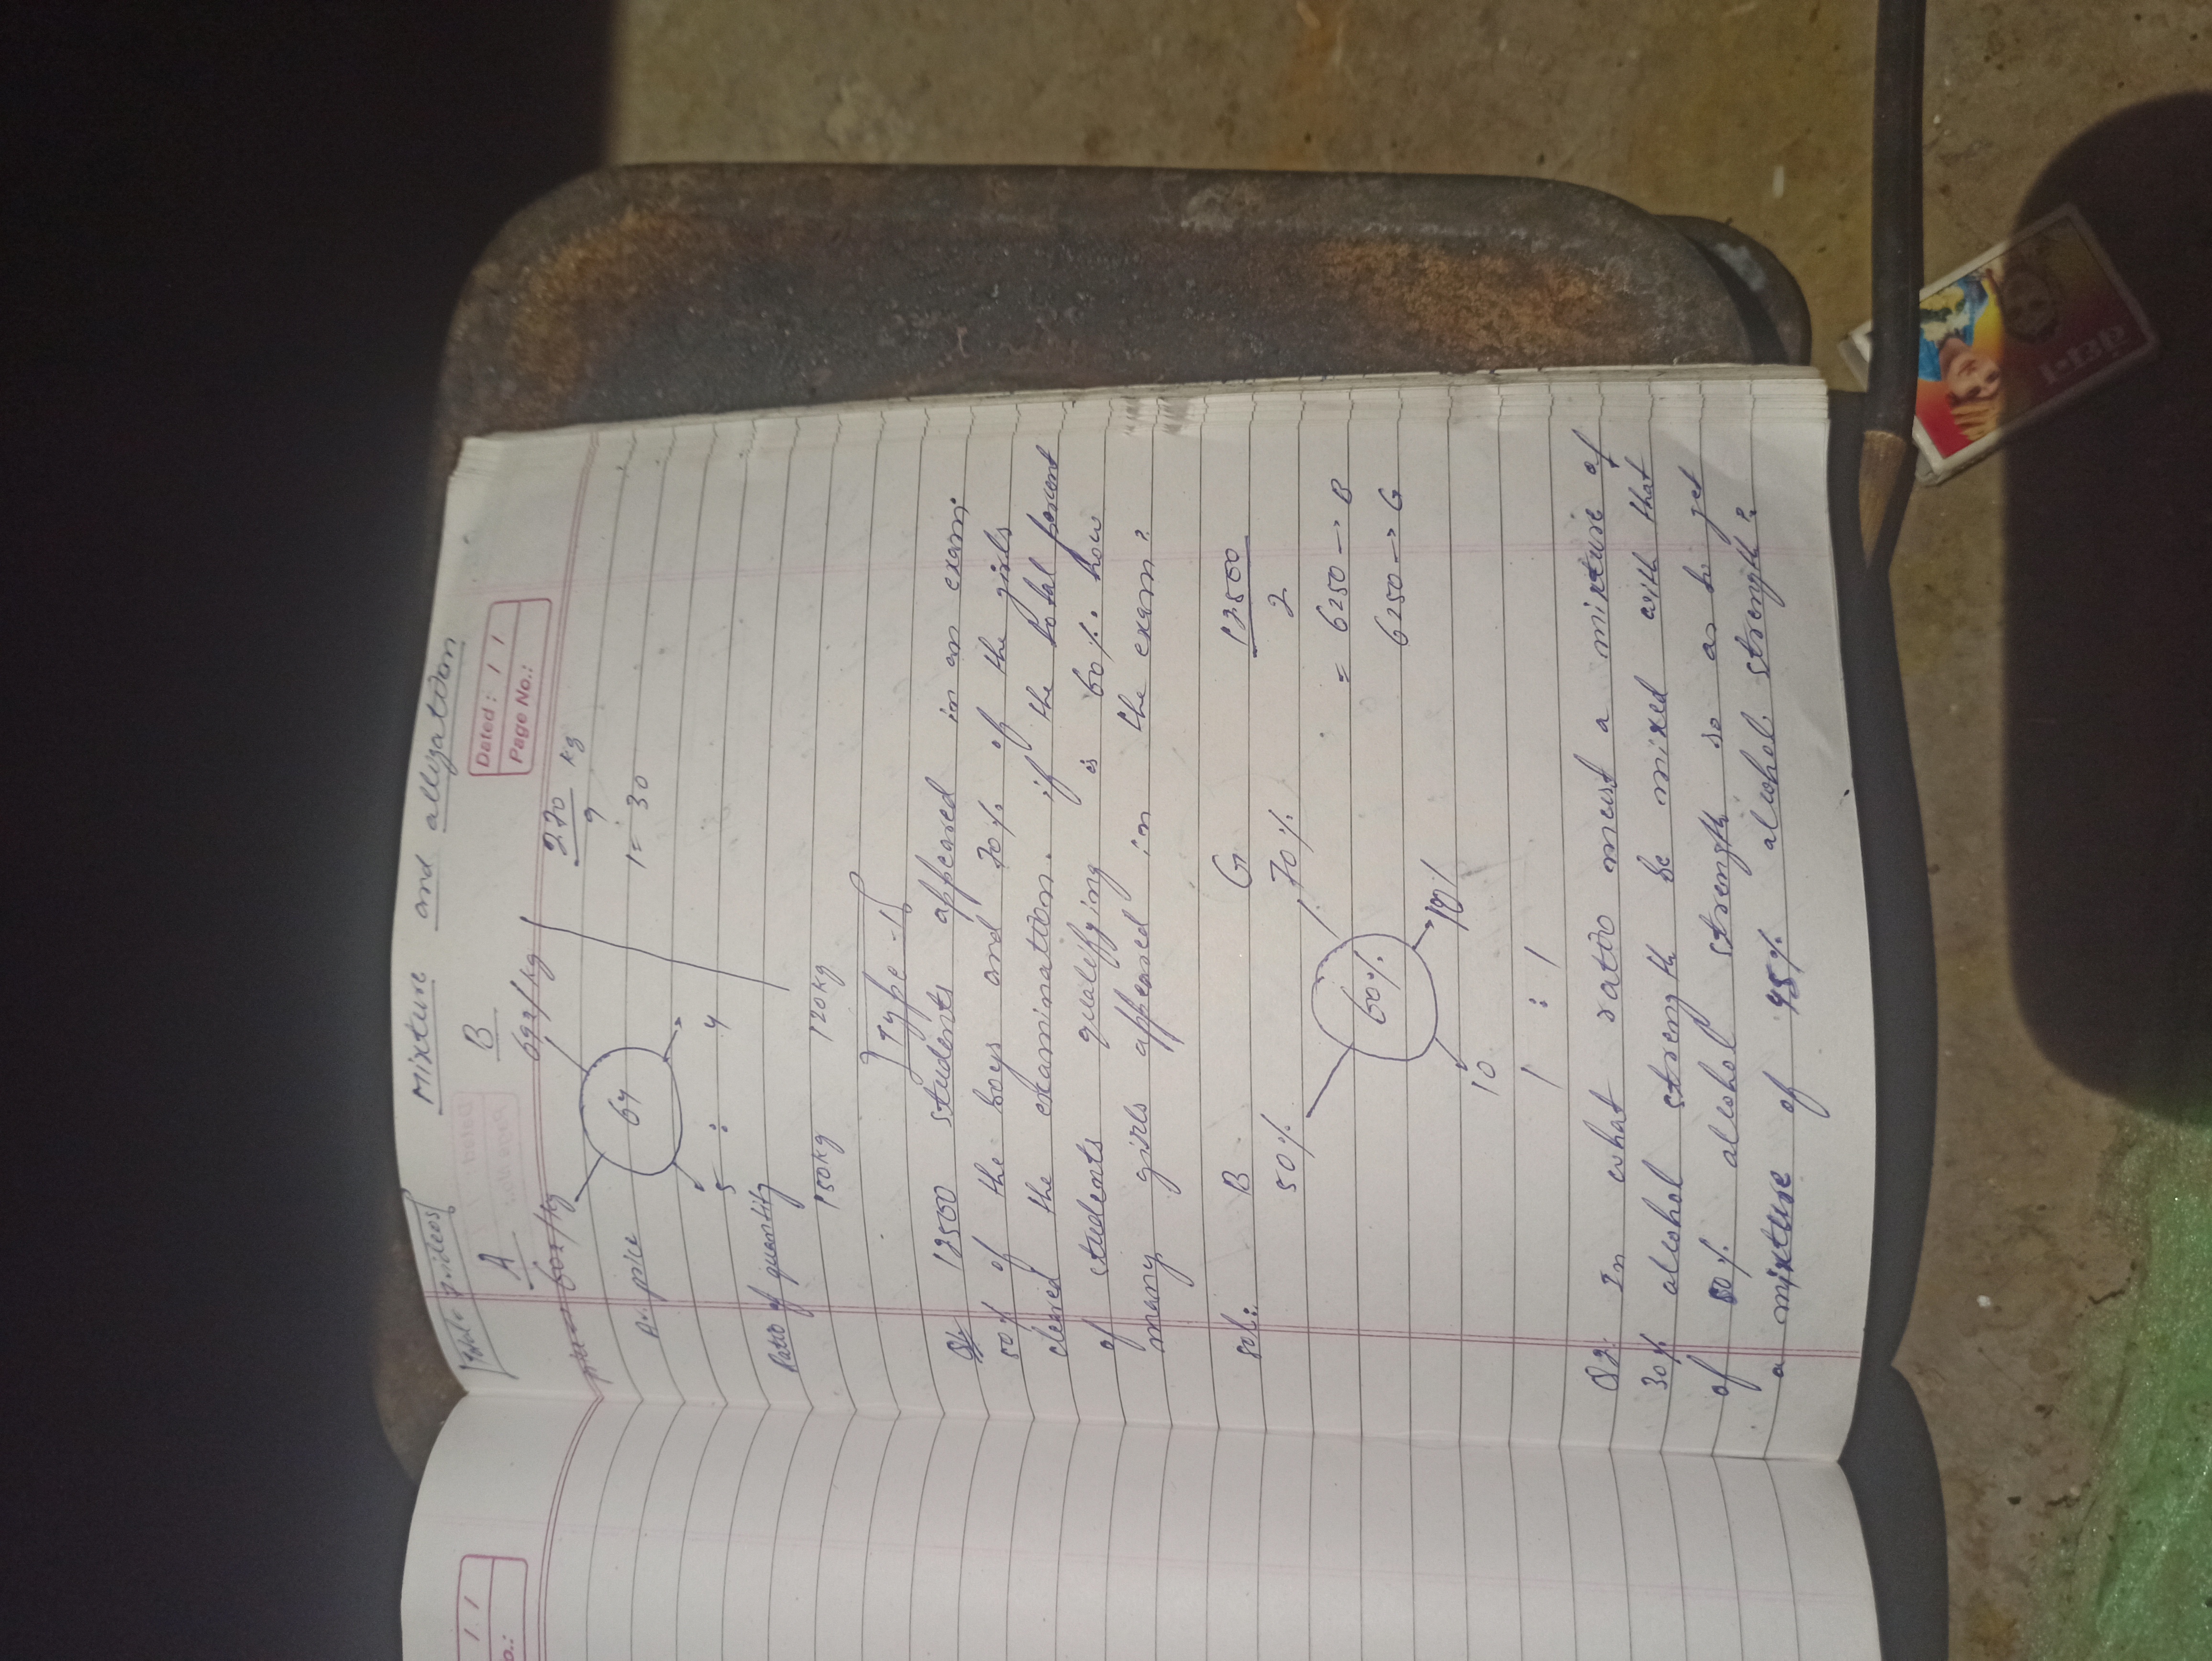 Total = 7 videos
Mixture and alligation
Dated : / /
Page No.:
A B
60₹/kg 69₹/kg
Av. price 64
5 : 4
Ratio of quantity
150kg 120kg
270/9 kg
1 = 30
Type -1
Q1. 12500 students appeared in an exam.
50% of the boys and 70% of the girls
cleared the examination. if the total percent
of students qualifying is 60%. how
many girls appeared in the exam?
sol: B G 12500/2
50% 70%
60%
= 6250 → B
6250 → G
10 10%
1 : 1
Q2: In what ratio must a mixture of
30% alcohol strength be mixed with that
of 50% alcohol strength so as to get
a mixture of 45% alcohol strength?